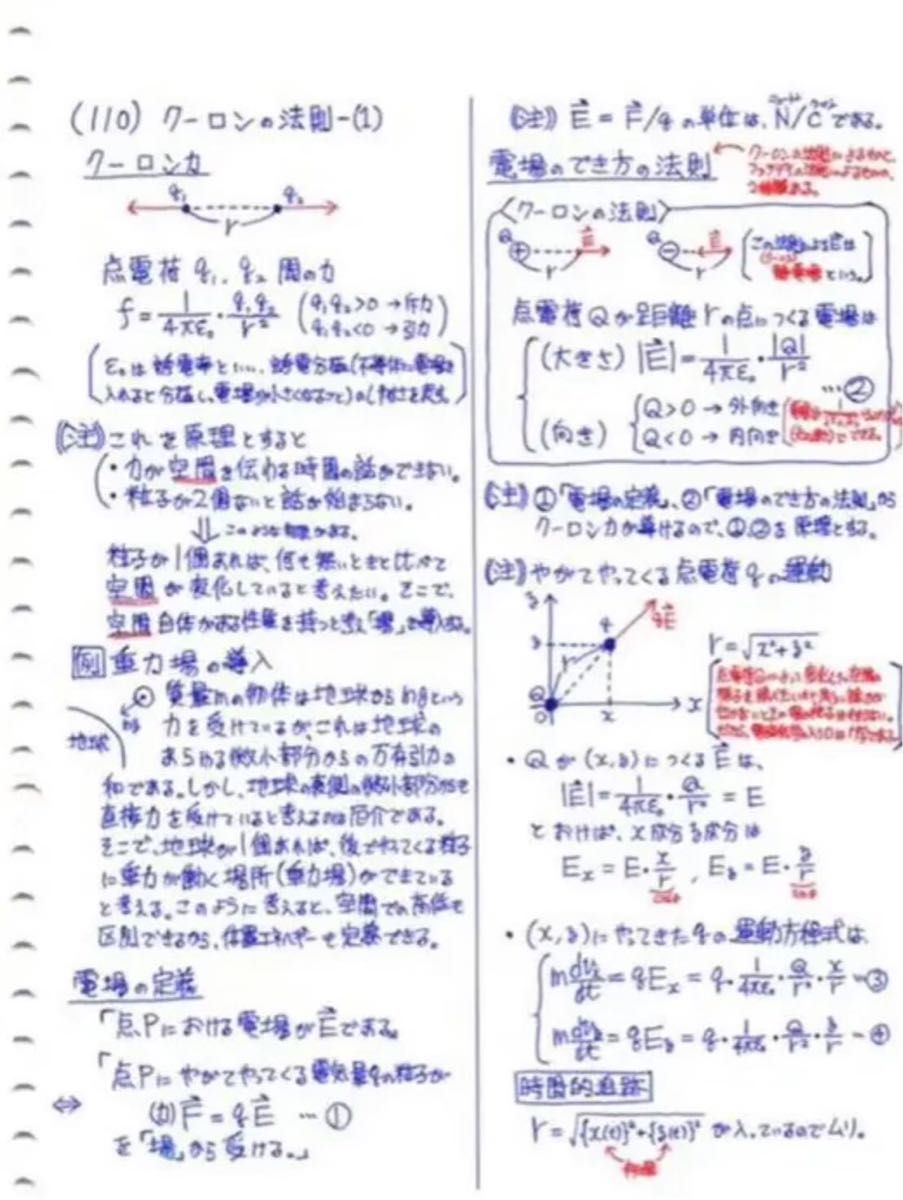 (110) クーロンの法則-(1)
クーロン力
q₁ q₂
r
点電荷 q₁、q₂ 間の力
f = 1/4πε₀ · q₁q₂/r² (q₁q₂>0 → 斥力
q₁q₂<0 → 引力)
ε₀は誘電率といい、誘電分極(不導体に電場を
入れると分極し、電場が小さくなること)の
(注) これを原理とすると
・力が空間を伝わる時間の話ができない。
・粒子が2個ないと話が始まらない。
⇓ このような
粒子が1個あれば、何も無いときと比べて
空間が変化していると考えたい。そこで、
空間自体がある性質を持つと考え「場」を導入する。
例 重力場の導入
地球 mg
質量mの物体は地球からmgという
力を受けているが、これは地球の
あらゆる微小部分からの万有引力の
和である。しかし、地球の裏側の微小部分からも
直接力を受けていると考えるのは厄介である。
そこで、地球が1個あれば、後でやってくる粒子
に重力が働く場所(重力場)ができている
と考える。このように考えると、空間での高低も
区別できるから、位置エネルギーも定義できる。
電場の定義
「点Pにおける電場がE⃗である。
⇔ 「点Pにやがてやってくる電気量qの粒子が
(力)F⃗ = qE⃗ … ①
を「場」から受ける。」
(注) E⃗ = F⃗/q の単位は、N/C である。
電場のでき方の法則
← クーロンの法則によるものと、
2種類ある。
〈クーロンの法則〉
Q ⊕ r E⃗
Q ⊖ r E⃗
この法則によるE⃗は
静電場という。
点電荷Qが距離rの点につくる電場は
(大きさ) |E⃗| = 1/4πε₀ · |Q|/r²
… ②
(向き) Q>0 → 外向き
Q<0 → 内向き
(注) ①「電場の定義」、②「電場のでき方の法則」から
クーロン力が導けるので、①、②を原理とする。
(注) やがてやってくる点電荷qの運動
y q qE⃗
y r
Q O x x
r = √x²+y²
・Qが(x,y)につくるE⃗は、
|E⃗| = 1/4πε₀ · Q/r² = E
とおけば、x成分y成分は
Eₓ = E · x/r , Eᵧ = E · y/r
cosθ sinθ
・(x,y)にやってきたqの運動方程式は、
m dvₓ/dt = qEₓ = q · 1/4πε₀ · Q/r² · x/r … ③
m dvᵧ/dt = qEᵧ = q · 1/4πε₀ · Q/r² · y/r … ④
時間的追跡
r = √{x(t)}²+{y(t)}² が入っているのでムリ。